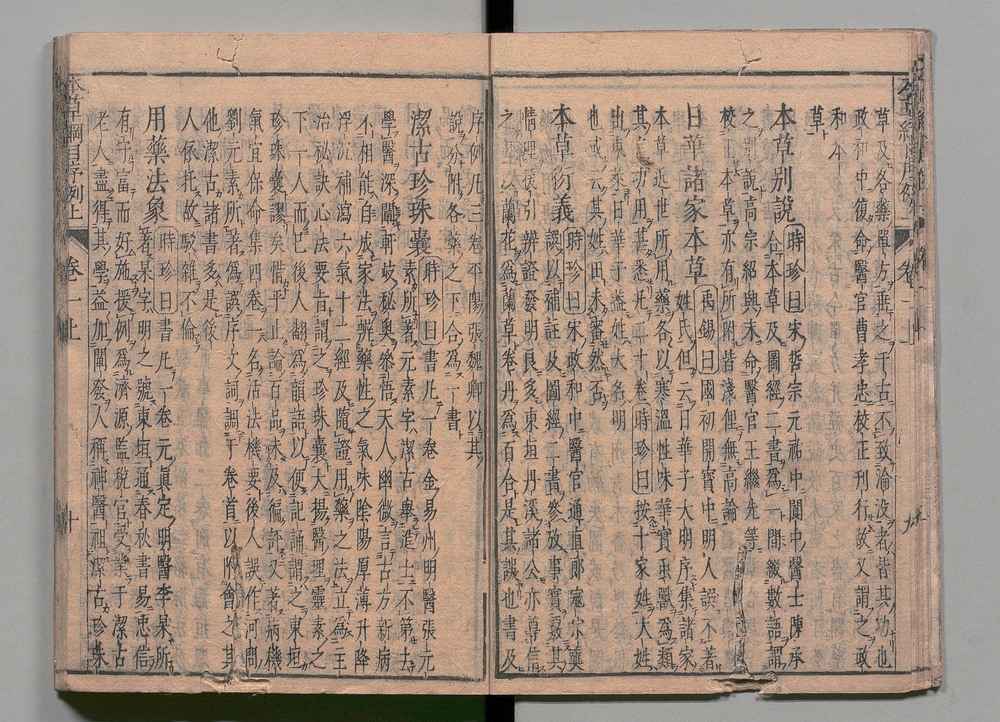 草及各藥單方垂之千古不致淪没者皆其功也
政和中復命醫官曹孝忠校正刊行故又謂之政
和本
草
本草别說 時珍曰宋哲宗元祐中閬中醫士陳承
合本草及圖經二書爲一間綴數語謂
之別說高宗紹興末命醫官王繼先等
校正本草亦有所附皆淺俚無高論
日華諸家本草 禹錫曰國初開寶中明人撰不著
姓氏但云日華子大明序集諸家
本草近世所用藥各以寒溫性味華實虫獸爲類
其言功用甚悉凡二十卷時珍曰按千家姓大姓
出東萊日華子蓋姓大名明
也或云其姓田未審然否
本草衍義 時珍曰宋政和中醫官通直郎寇宗奭
撰以補註及圖經二書參攷事實覈其
情理援引辨證發明良多東垣丹溪諸公亦尊信
之但以蘭花爲蘭草卷丹爲百合是其誤也書及
本草綱目序例上 卷一上
序例凡三卷平陽張魏卿以其
說分附各藥之下合爲一書
潔古珍珠囊 時珍曰書凡一卷金易州明醫張元
素所著元素字潔古舉進士不第去
學醫深闡軒岐秘奥參悟天人幽微言古方新病
不相能自成家法辨藥性之氣味陰陽厚薄升降
浮沉補瀉六氣十二經及隨證用藥之法立爲主
治秘訣心法要旨謂之珍珠囊大揚醫理靈素之
下一人而已後人翻爲韻語以便記誦謂之東垣
珍珠囊謬矣惜乎止論百品未及徧評又著病機
氣宜保命集四卷一名活法機要後人誤作河間
劉元素所著爲撰序文詞調于卷首以附會之其
他潔古諸書多是後
人依托故駁雜不倫
用藥法象 時珍曰書凡一卷元眞定明醫李杲所
著杲字明之號東垣通春秋書易忠信
有守富而好施援例爲濟源監稅官受業于潔古
老人盡得其學益加闡發人稱神醫祖潔古珍珠
本草綱目序例上 卷一上 十